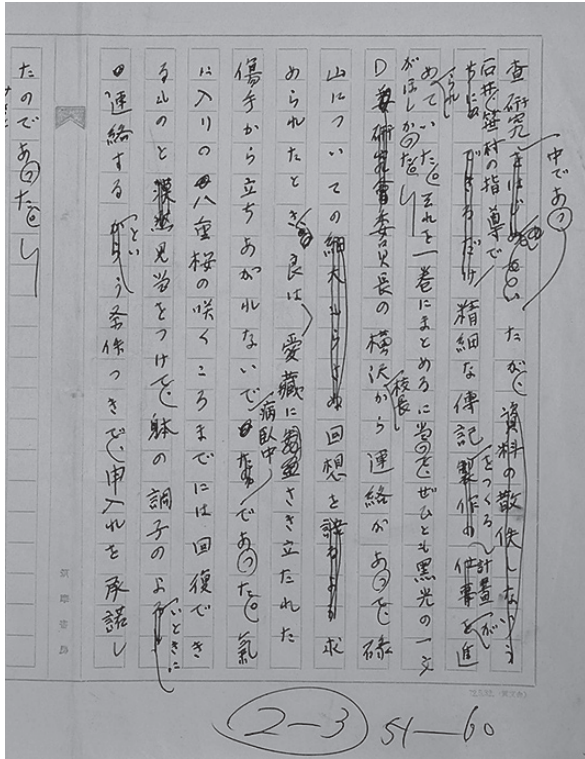 中であつ
査研究をはじめていたが、資料の散佚しないう
石井、笹村の指導で
ちに、できるだけ精細な傳記製作の仕事を進
をつくる計畫が
められ
めていた。それを一巻にまとめるに当つて、ぜひとも黒光の一文
がほしかつた。」
D美術研究會委員長の横沢校長から連絡があつて、碌
山についての細大もらさぬ回想を誰よりも求
められたとき、良は、愛蔵にさき立たれた
傷手から立ちあがれないで
病臥中
であつた。氣
に入りの八重桜の咲くころまでには回復でき
るものと見当をつけて、躰の調子のよ
いときに
連絡するからと
とい
う条件つきで、申入れを承諾し
たのであつた。」
2—3 51—60